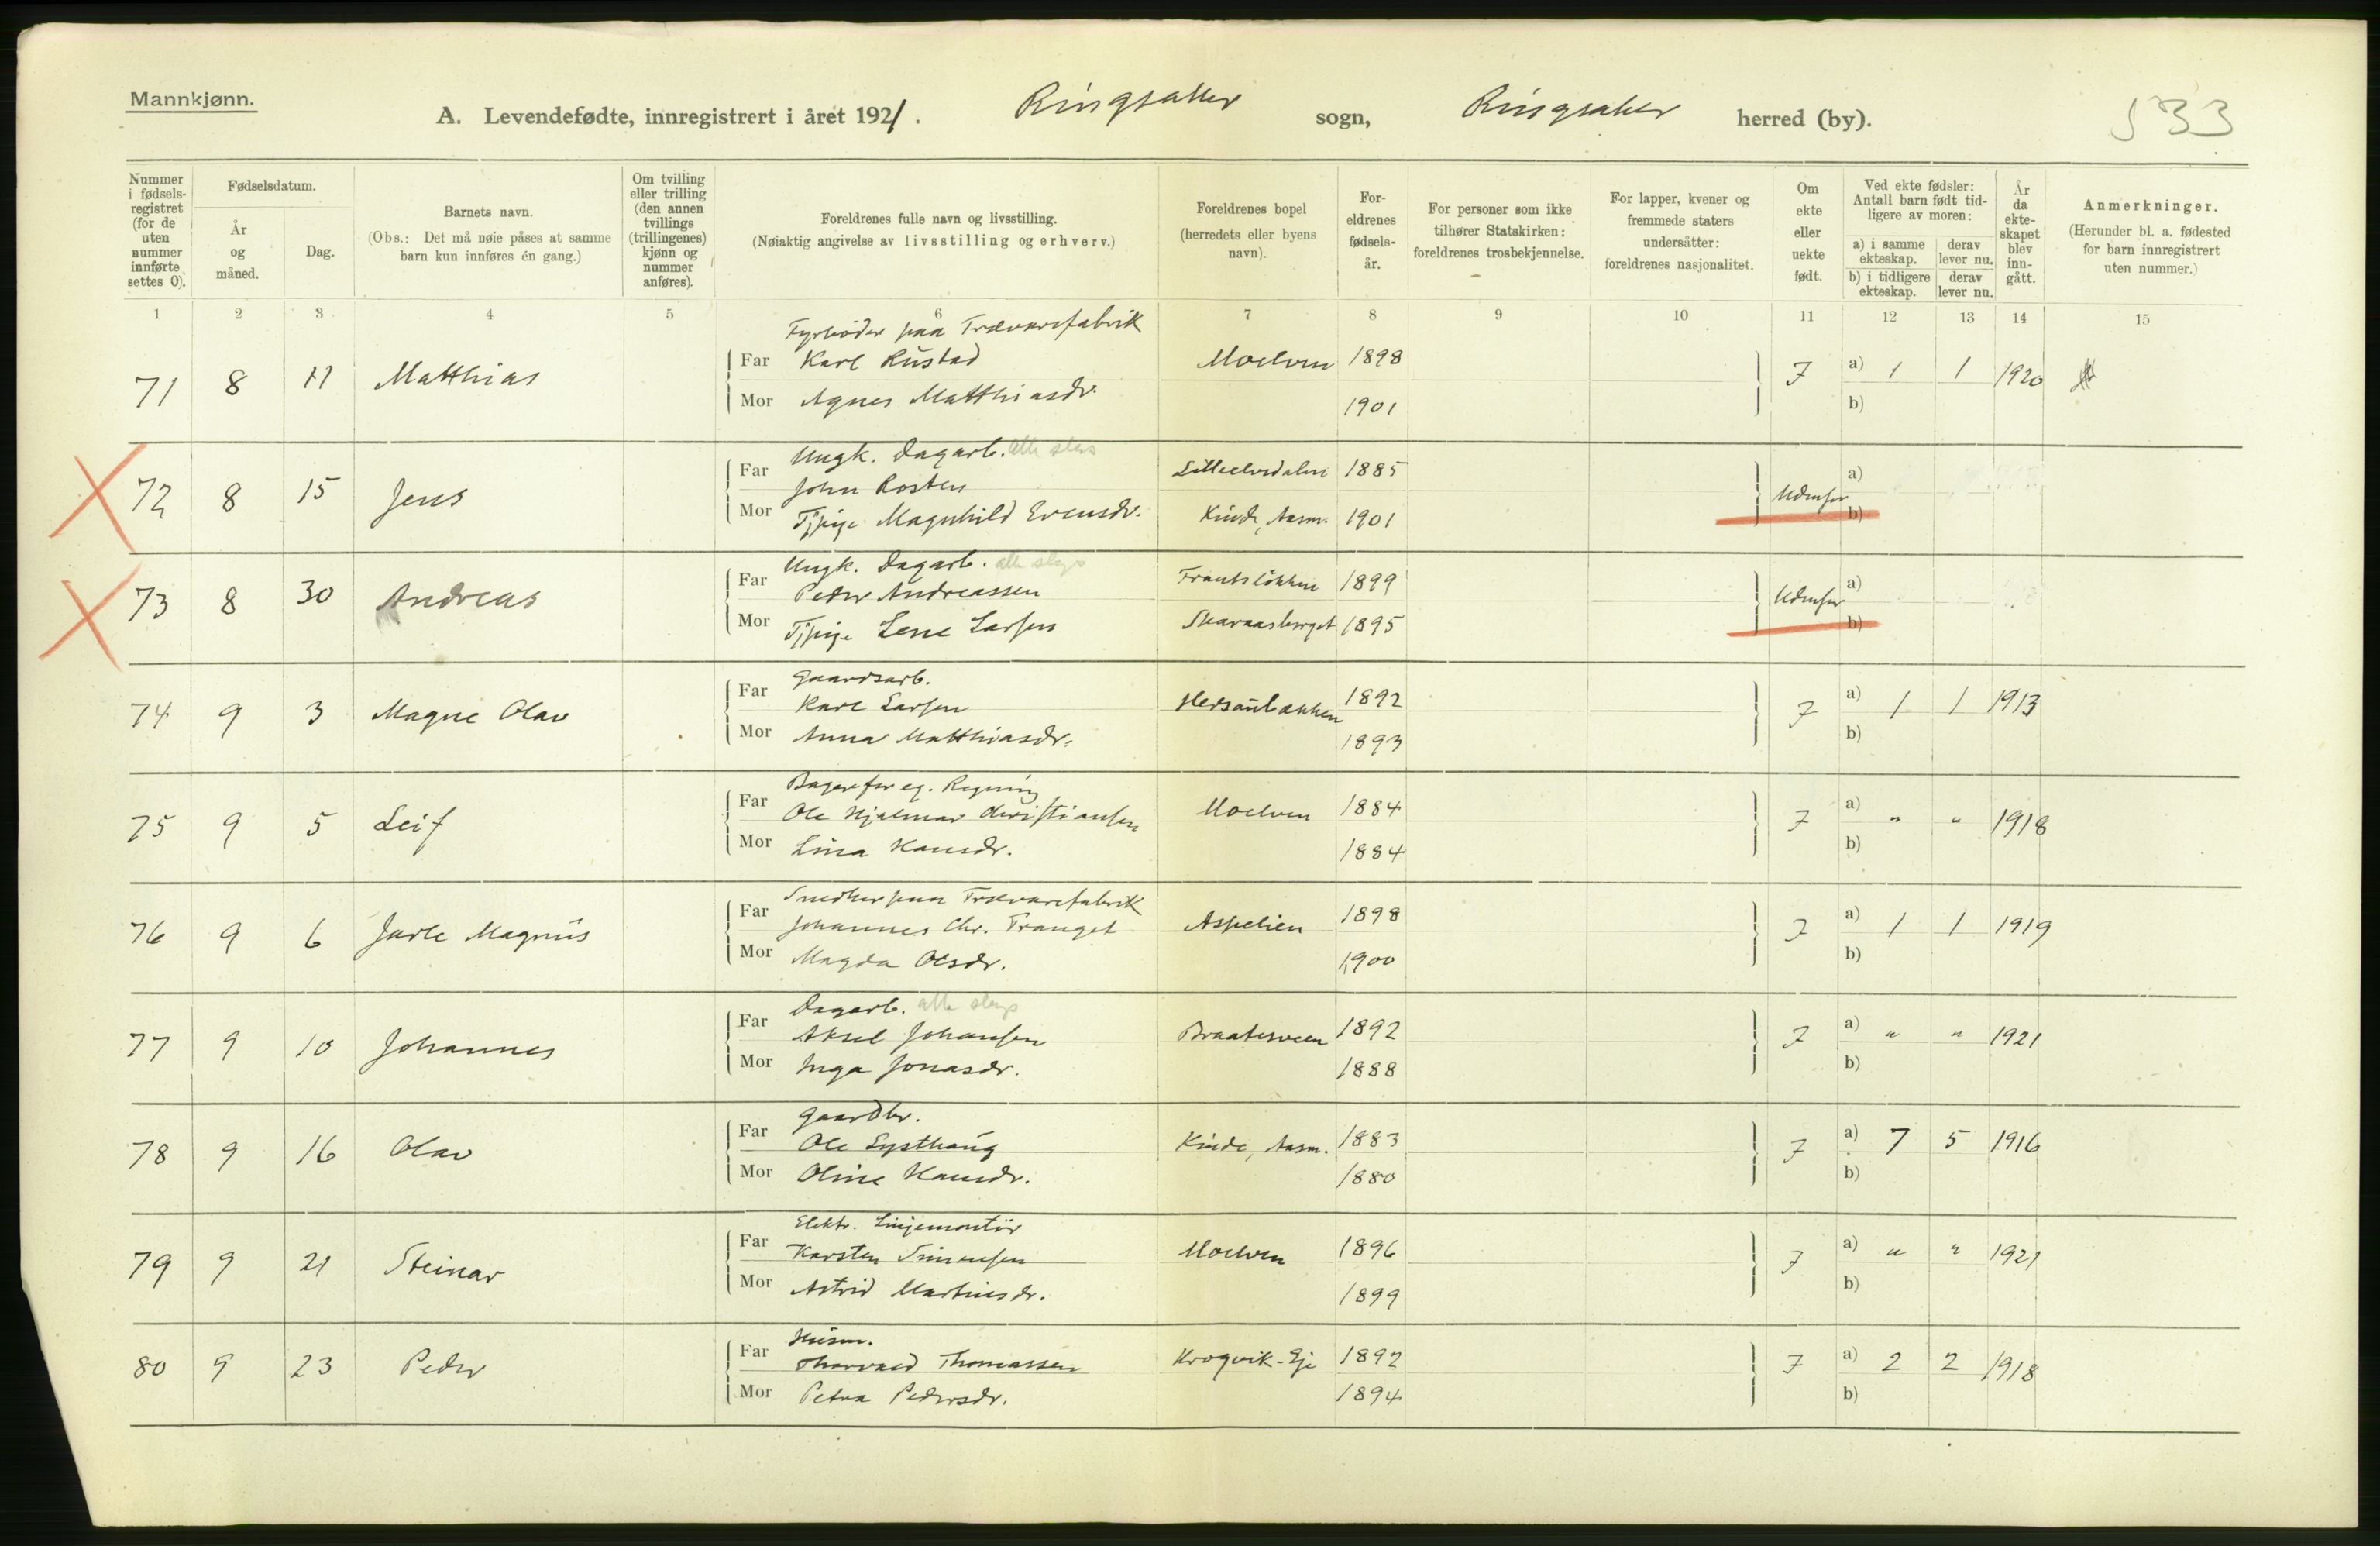 Mannkjønn.
A. Levendefødte, innregistrert i året 1921. Ringsaker sogn, Ringsaker herred (by). 533
Nummer i fødsels-registret (for de uten nummer innførte settes 0).
Fødselsdatum.
År og måned.
Dag.
Barnets navn.
(Obs.: Det må nøie påses at samme barn kun innføres én gang.)
Om tvilling eller trilling (den annen tvillings (trillingenes) kjønn og nummer anføres).
Foreldrenes fulle navn og livsstilling.
(Nøiaktig angivelse av livsstilling og erhverv.)
Foreldrenes bopel (herredets eller byens navn).
For-eldrenes fødsels-år.
For personer som ikke tilhører Statskirken: foreldrenes trosbekjennelse.
For lapper, kvener og fremmede staters undersåtter: foreldrenes nasjonalitet.
Om ekte eller uekte født.
Ved ekte fødsler: Antall barn født tid-ligere av moren:
a) i samme ekteskap. derav lever nu.
b) i tidligere ekteskap. derav lever nu.
År da ekte-skapet blev inn-gått.
Anmerkninger.
(Herunder bl. a. fødested for barn innregistrert uten nummer.)
1 2 3 4 5 6 7 8 9 10 11 12 13 14 15
Fyrböder paa Trævarefabrik
71 8 11 Matthias Far Karl Rustad Moelven 1898 F a) 1 1 1920
Mor Agnes Matthiasdr. 1901 b)
Ungk. Dagarb. alle slags
72 8 15 Jens Far John Rosten Lilleelvedalen 1885 Udenfor a)
Mor Tjpige Magnhild Evensdr. Kinde, Aasm. 1901 b)
Ungk. Dagarb. alle slags
73 8 30 Andreas Far Peder Andreassen 1899 Udenfor a)
Mor Tjpige Lene Larsen Skaraasberget 1895 b)
Gaardsarb.
74 9 3 Magne Olav Far Karl Larsen Hersaubakken 1892 F a) 1 1 1913
Mor Anna Matthiasdr. 1893 b)
Bager for eg. Regning
75 9 5 Leif Far Ole Hjalmar Christiansen Moelven 1884 F a) " " 1918
Mor Lina Hansdr. 1884 b)
Snedker paa Trævarefabrik
76 9 6 Jarle Magnus Far Johannes Chr. Tranget Aspelien 1898 F a) 1 1 1919
Mor Magda Olsdr. 1900 b)
Dagarb. alle slags
77 9 10 Johannes Far Aksel Johansen Braatesveen 1892 F a) " " 1921
Mor Inga Jonasdr. 1888 b)
Gaardbr.
78 9 16 Olav Far Ole Systhaug Kinde, Aasm. 1883 F a) 7 5 1916
Mor Oline Hansdr. 1880 b)
Elektr. Linjemontör
79 9 21 Steinar Far Karsten Simensen Moelven 1896 F a) " " 1921
Mor Astrid Martinsdr. 1899 b)
Husm.
80 9 23 Peder Far Thorvald Thomassen Krogvik-Eje 1892 F a) 2 2 1918
Mor Petra Pedersdr. 1894 b)